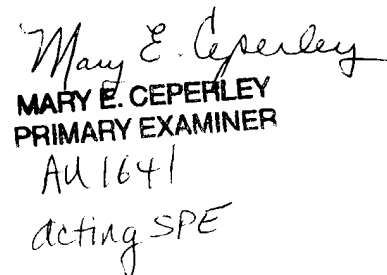 Mary E. Ceperley
MARY E. CEPERLEY
PRIMARY EXAMINER
AU 1641
acting SPE